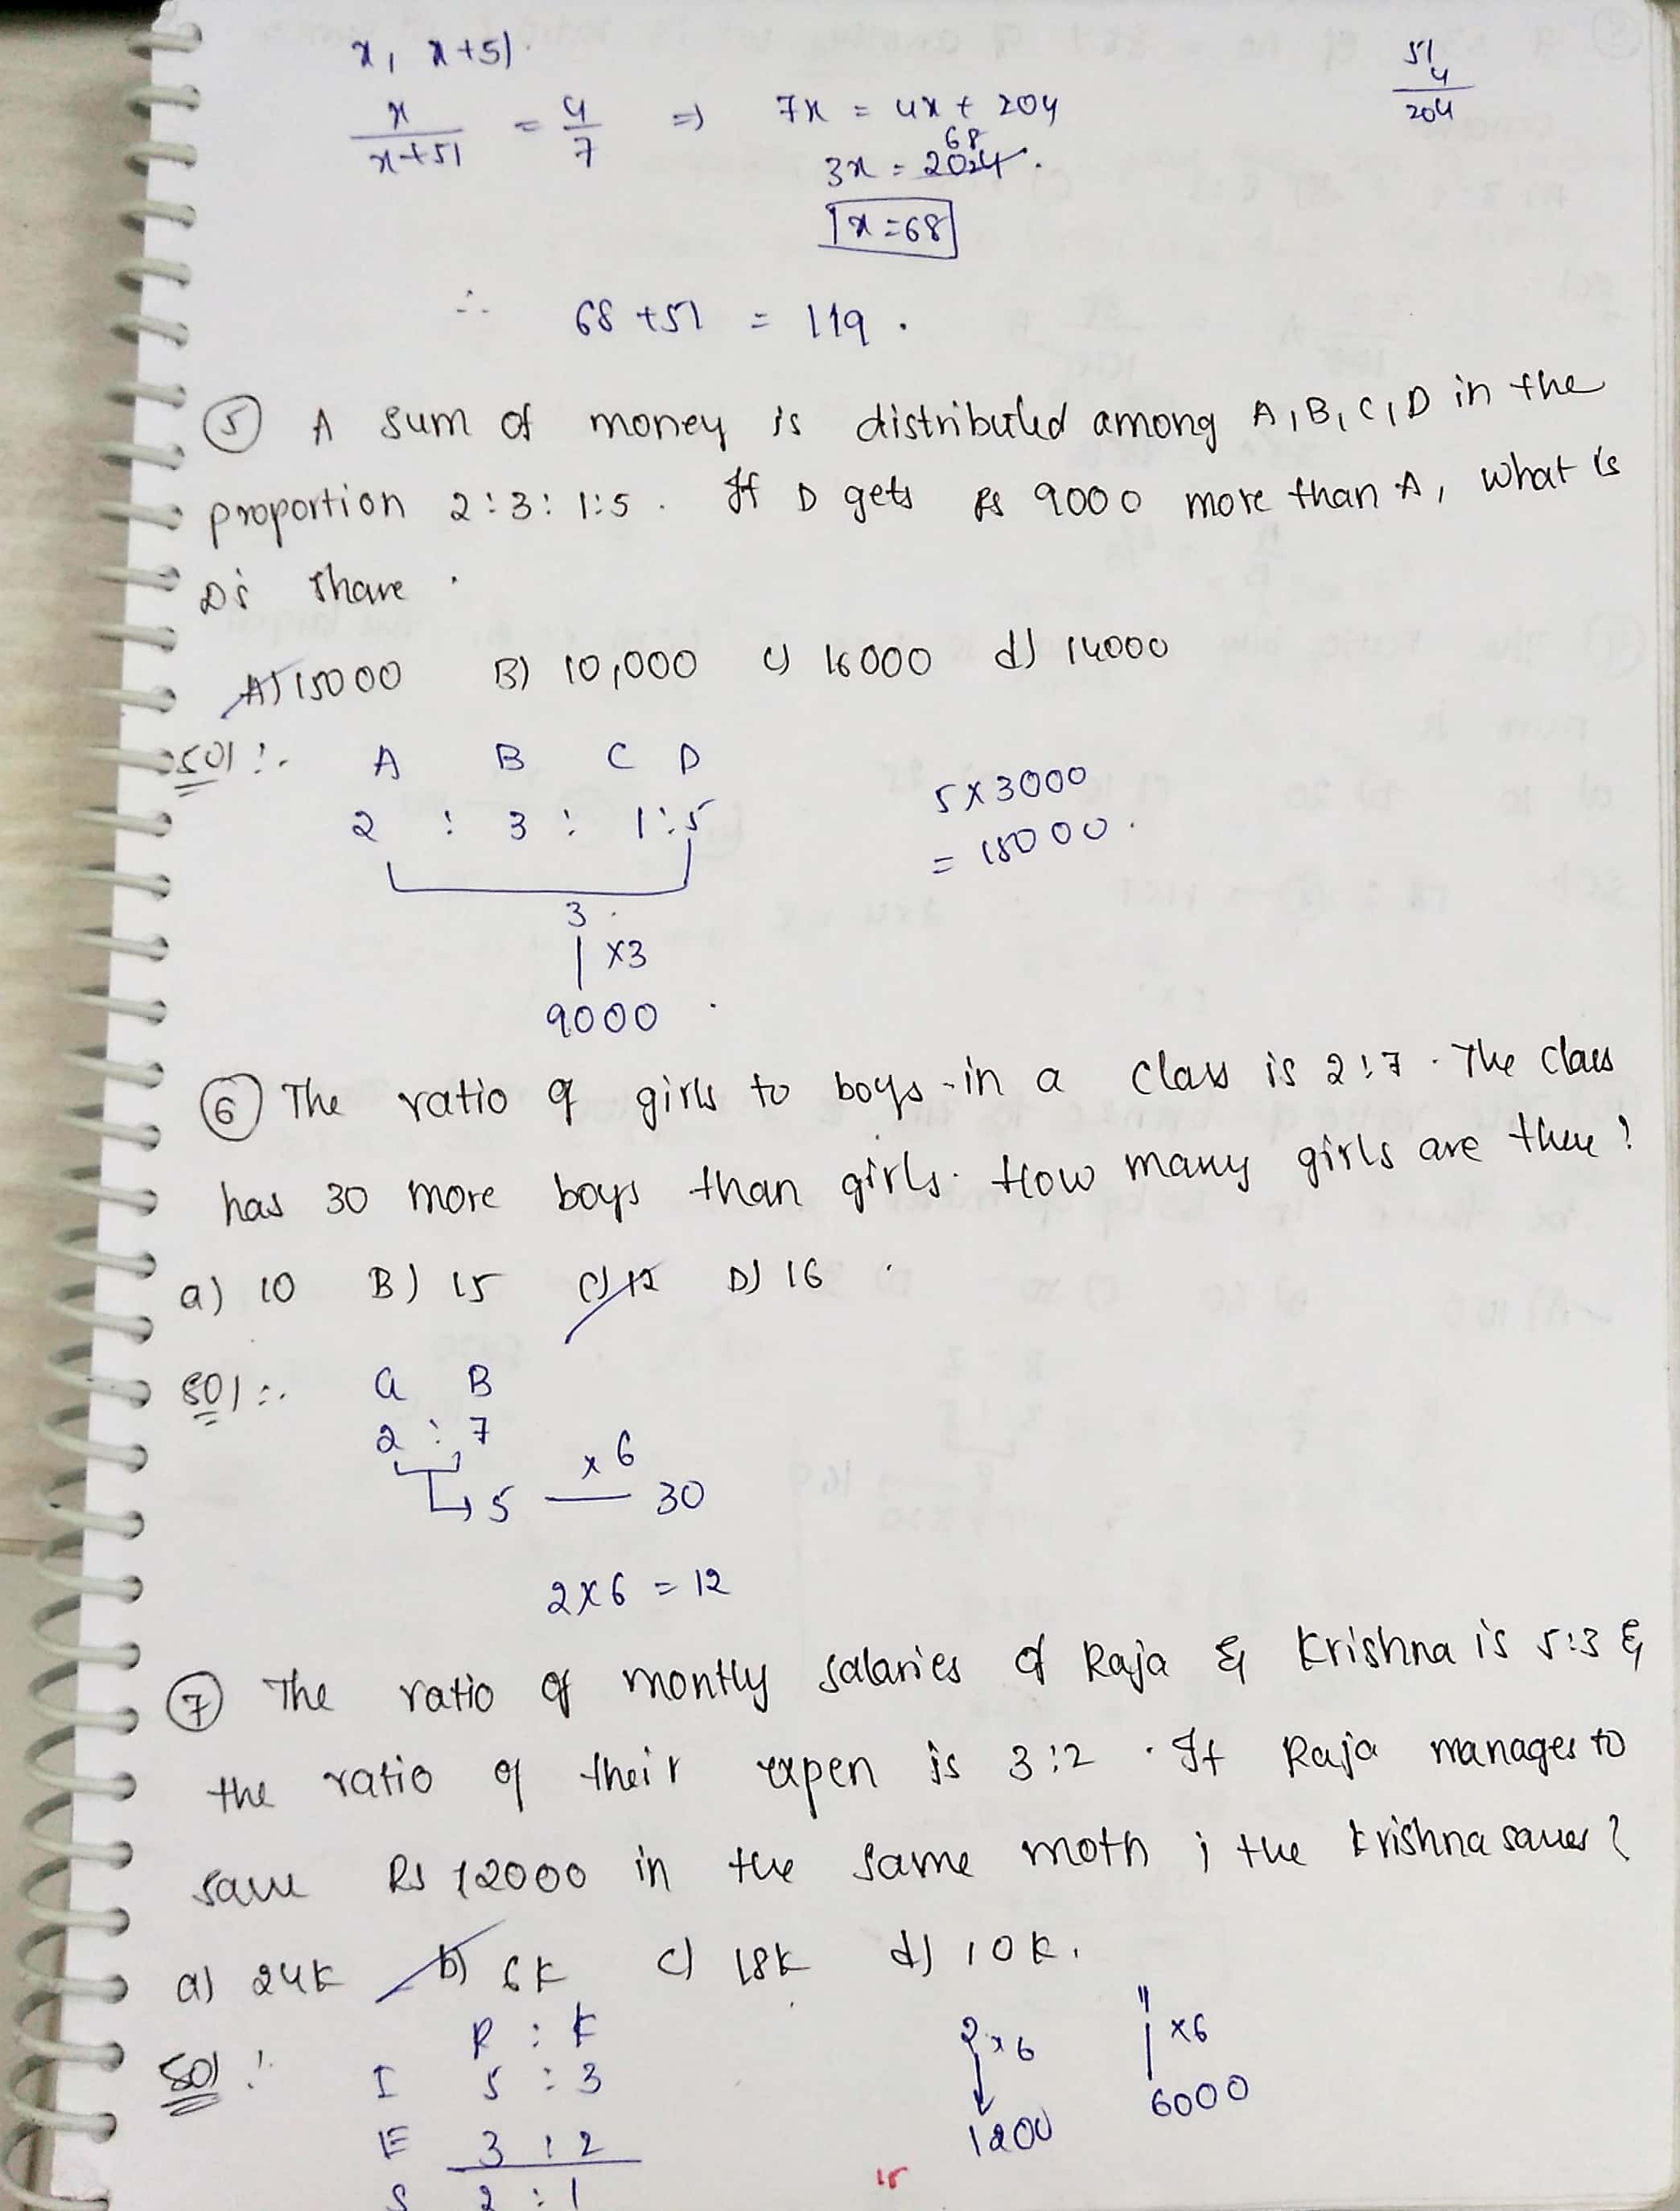 x, x+51.
x/(x+51) = 4/7 => 7x = 4x + 204
51
4
204
68
3x = 204.
x = 68
∴ 68 + 51 = 119.
⑤ A sum of money is distributed among A, B, C, D in the
proportion 2:3:1:5. If D gets Rs 9000 more than A, what is
D's share.
A) 15000 B) 10,000 c) 16000 d) 14000
Sol :. A B C D
2 : 3 : 1:5
5 x 3000
= 15000.
3.
x3
9000
⑥ The ratio of girls to boys in a class is 2:7. The class
has 30 more boys than girls. How many girls are there?
a) 10 B) 15 C) 12 D) 16
Sol :. G B
2 : 7
5 x 6 30
2 x 6 = 12
⑦ The ratio of montly salaries of Raja & Krishna is 5:3 &
the ratio of their expen is 3:2. If Raja manages to
save Rs 12000 in the same moth ; the Krishna saves?
a) 24K b) 6K c) 18K d) 10K.
Sol : R : K
I 5 : 3
E 3 : 2
S 2 : 1
2 x 6
1200
x6
6000
15